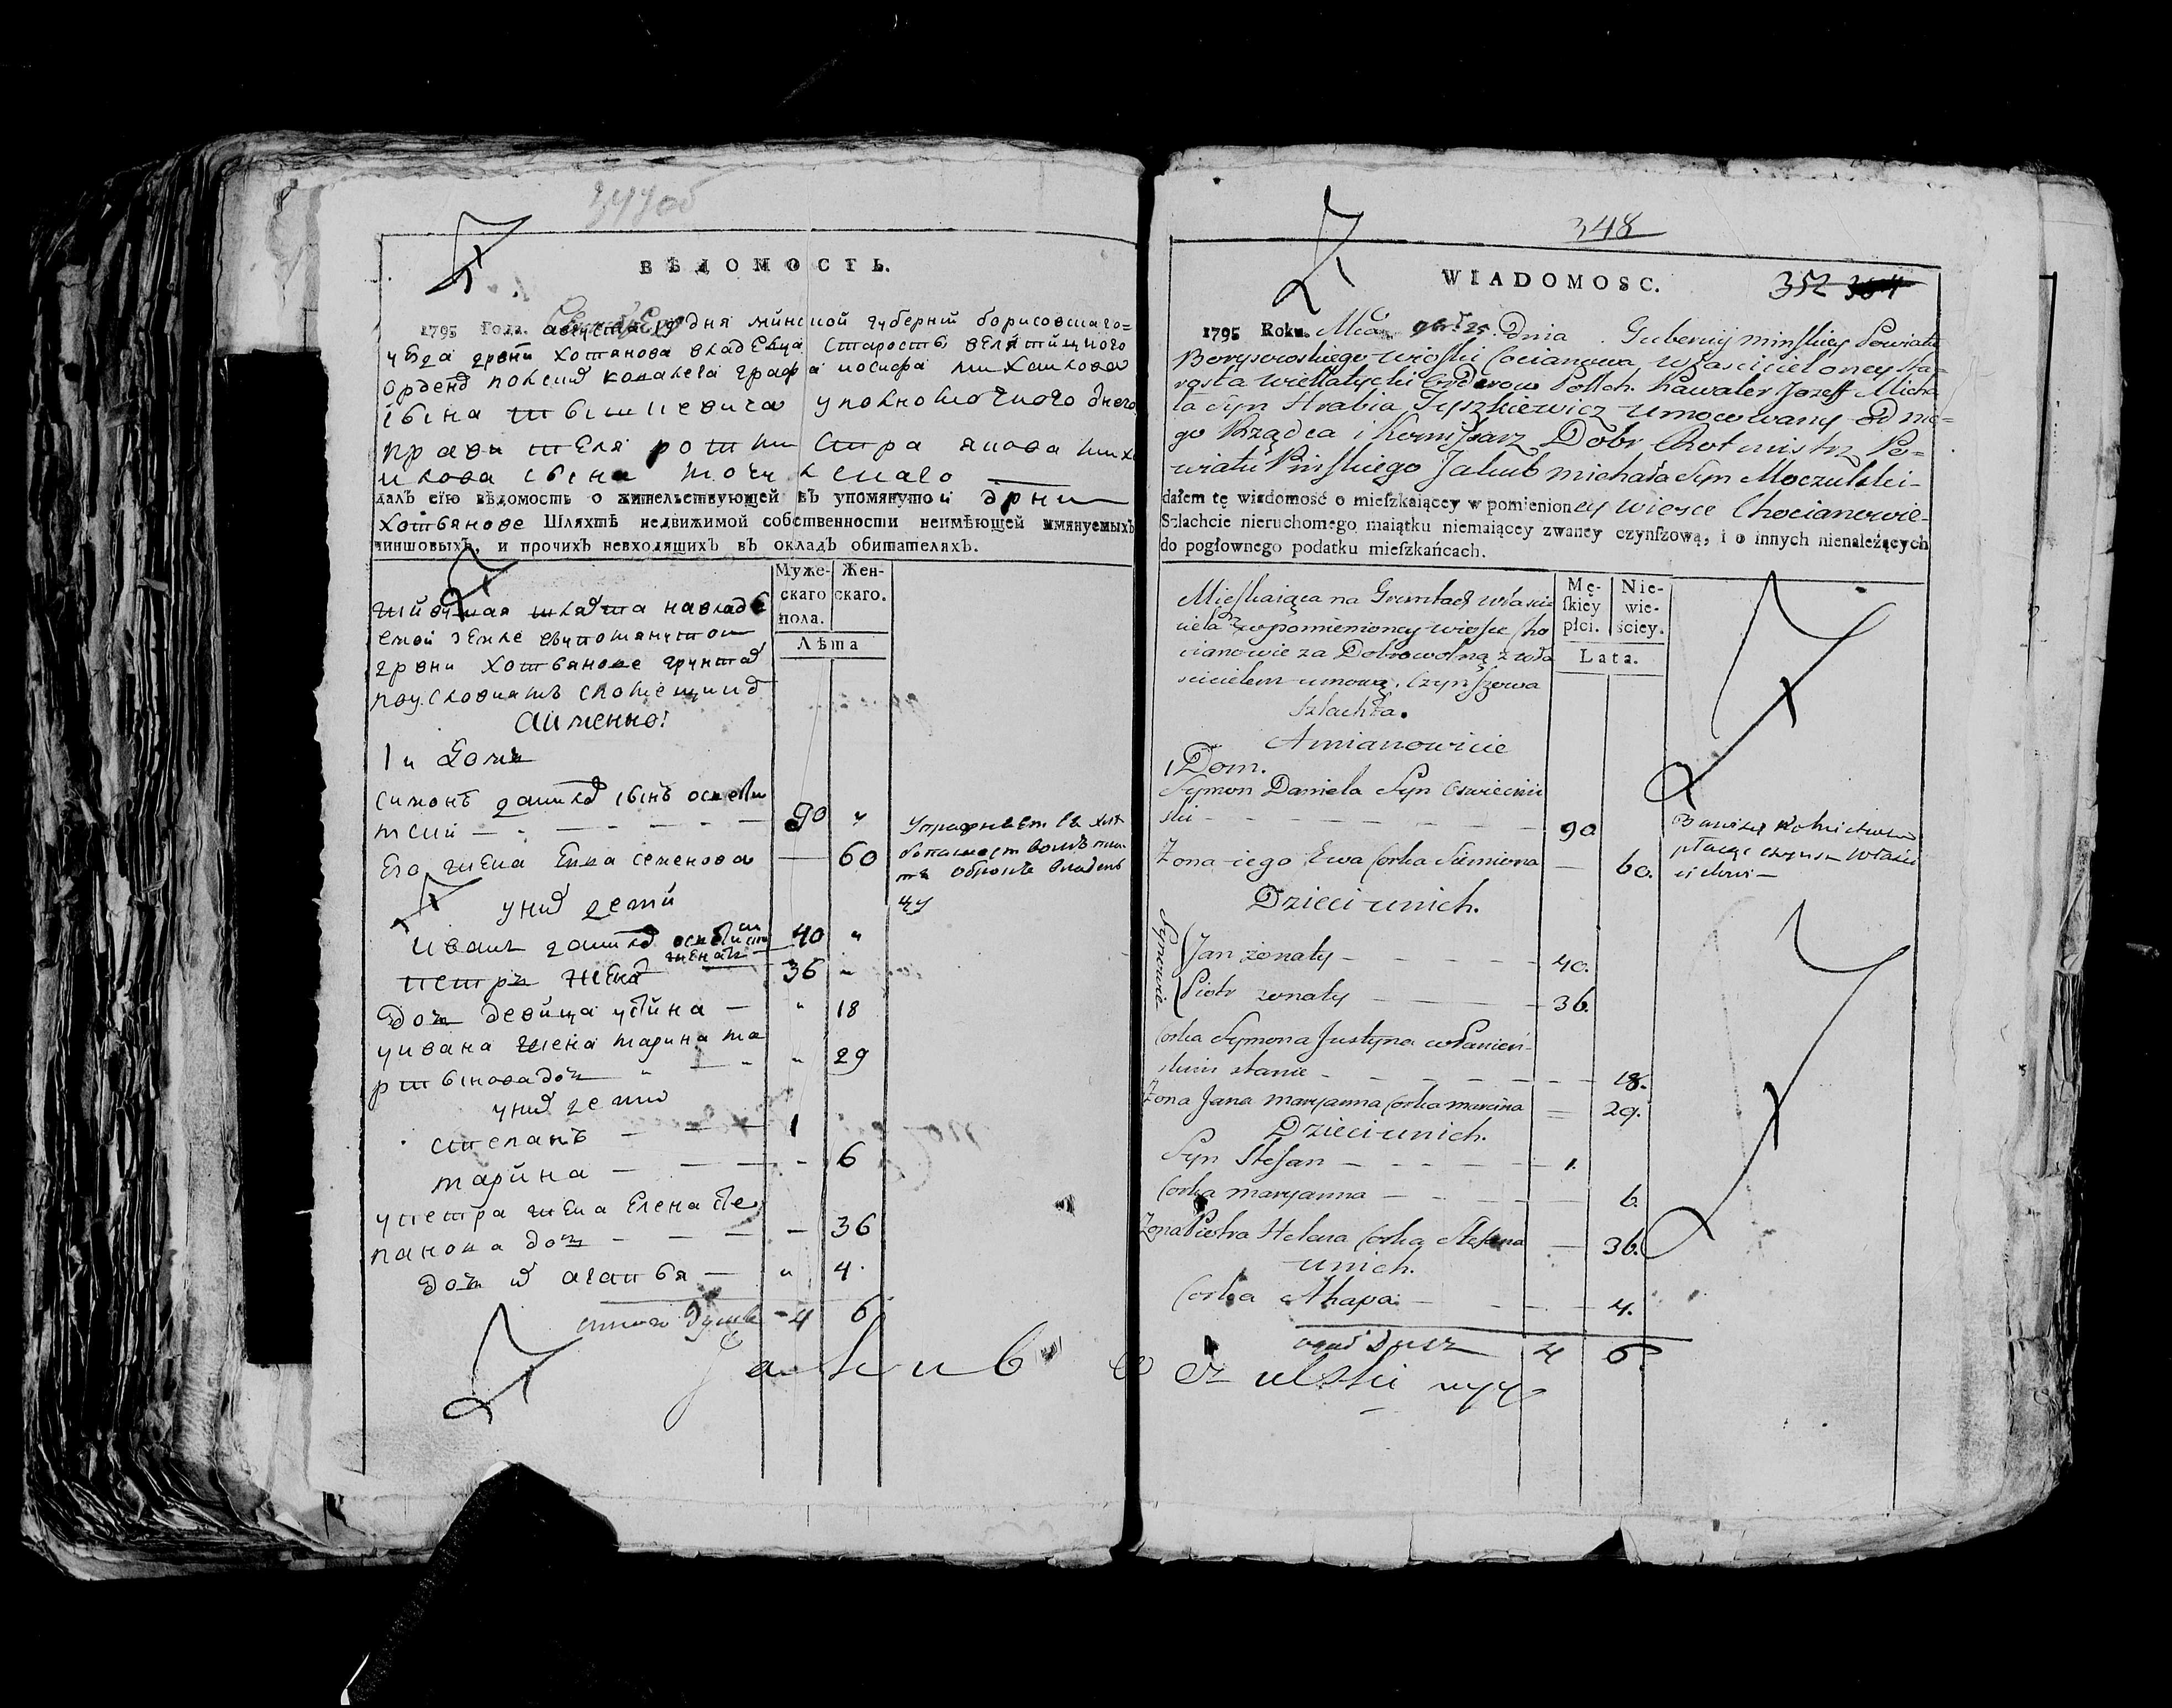 ВѢДОМОСТЬ.
1795 Года. августа дня минской губерній борисовскаго=
уезда дрвни хотянова владельца старосты велятицкого
ордено польскихъ кавалера графа иосифа михаилова
сына тышкевича уполномоченого д него
правителя ротмистра якова миха
илова сына мочулскаго
далъ сїю вѣдомость о жительствующей въ упомянутой дрни
хотьянове Шляхтѣ недвижимой собственности неимѣющей имянуемыхъ
чиншовыхъ, и прочихъ невходящихъ въ окладъ обитателяхъ.
Муже-скаго пола. Жен-скаго.
Лѣта
живущая шляхта навладе
емой земле впомянутой
дрвни хотьянове грунтах
а именно:
1 й домъ
симонъ данилов сынъ
90 "
его жена Ева семенова — 60
у них дети
иванъ 40 "
петръ женат 36 "
доч девица устина — " 18
у ивана жена марина ма
ртынова доч " 29
у них дети
степанъ — 1
марина — 6
у петра жена Елена сте
панова доч — 36
доч их агапья — " 4.
итого душъ 4 6
348
WIADOMOSC.
352
1795 Roku. Mca 25. Dnia . Gubernij minskiey Powiatu
Borysowskiego wioski Cocianowa właścicieloney sta=
rosta wiellatycki Orderow Polsch. kawaler Jozeff Micha
ła Syn Hrabia Tyszkiewicz umocowany od nie=
go Rządca i Komissarz Dobr Rotmistrz Po=
wiatu Pinskiego Jakub michała Syn Moczulski-
dałem tę wiadomość o mieſzkaiącey w pomienioney wiesce Chocianowie-
Szlachcie nieruchomego maiątku niemaiącey zwaney czynſzową, i o innych nienależących
do pogłownego podatku mieſzkańcach.
Mę-ſkiey płci. Nie-wie-ściey.
Lata.
Mieszkaiąca na Gruntach właści
ciela w pomienioney wiosce Cho
cianowie za Dobrowolną z wła
scicielem umową. Czynszowa
Szlachta.
Amianowicie
1 Dom.
Symon Daniela Syn Oswiecim
ski — 90
Zona iego Ewa Corka Siemiona — 60.
płacąc czynsz właści
cielowi —
Dzieci u nich.
Synowie
Jan żonaty — 40.
Piotr zonaty — 36.
Corka Symona Justyna w Panień-
skim stanie — 18.
Zona Jana maryanna Corka marcina = 29.
Dzieci u nich.
Syn Stefan — 1.
Corka maryanna — 6.
Zona Piotra Helena Corka Stefana — 36.
u nich.
Corka Ahapa — 4.
Dusz 4 6.
Jakub Moczulski